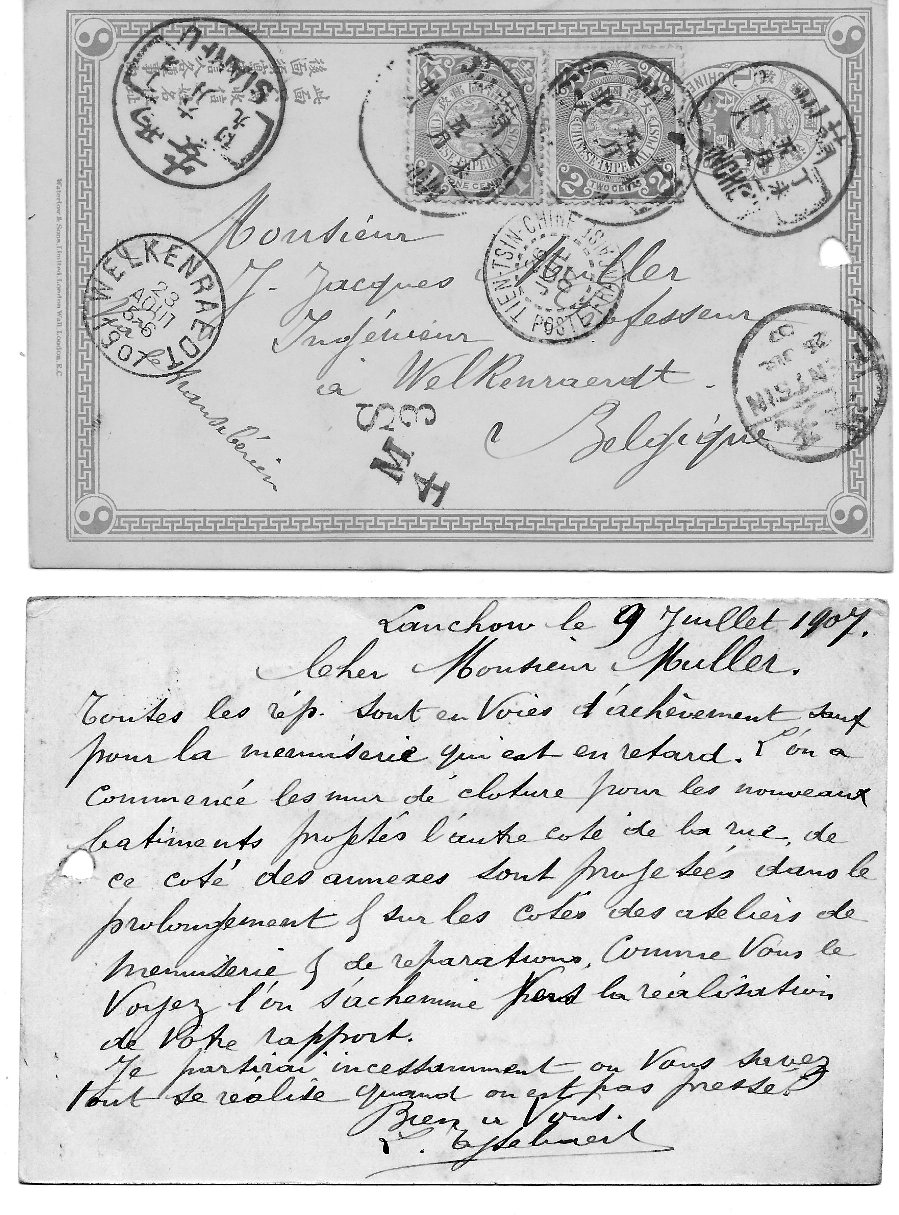 SIANFU
CHINESE IMPERIAL POST
ONE CENT
CHINESE IMPERIAL POST
TWO CENTS
Waterlow & Sons Limited, London Wall, London, E.C.
WELKENRAEDT
23
AOUT
TIEN-TSIN-CHINE
POSTE FRANÇAISE
TIENTSIN
Monsieur
J. Jacques Muller
Ingénieur Professeur
à Welkenraerdt.
Belgique
Lanchow le 9 Juillet 1907.
Cher Monsieur Muller.
Toutes les rép. sont en Voies d'achèvement sauf
pour la menuiserie qui est en retard. L'on a
commencé les mur de cloture pour les nouveaux
batiments projetés l'autre coté de la rue, de
ce coté des annexes sont projetées dans le
prolongement & sur les cotés des ateliers de
menuiserie & de réparations. Comme Vous le
Voyez l'on s'achemine Vers la réalisation
de Votre rapport.
Je partirai incessamment ou Vous savez
tout se réalise quand on est pas pressé!
Bien à Vous.